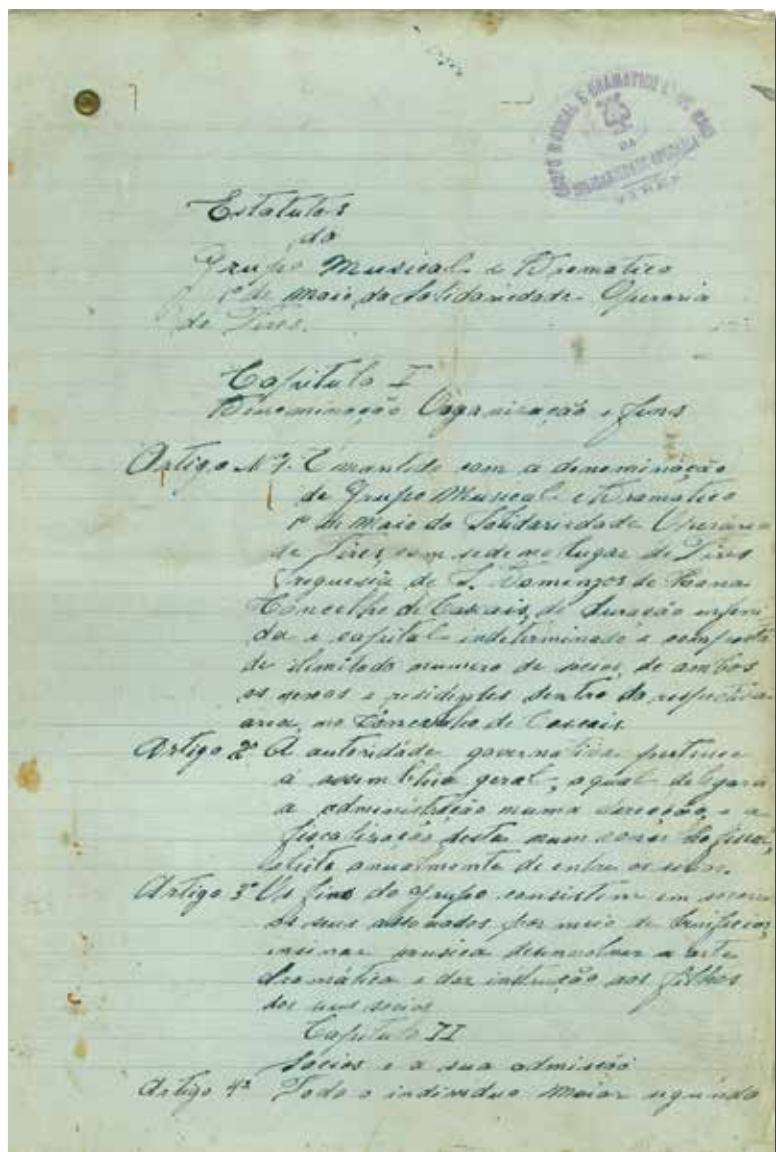 GRUPO MUSICAL E DRAMATICO 1º DE MAIO
DA
SOLIDARIEDADE OPERARIA
TIRES
Estatutos
do
Grupo Musical e Dramatico
1º de Maio da Solidariedade Operaria
de Tires.
Capitulo I
Denominação Organização e fins
Artigo Nº 1. É mantido com a denominação
de Grupo Musical e Dramatico
1º de Maio da Solidariedade Operaria
de Tires, com sede no lugar de Tires
freguesia de S. Domingos de Rana
Concelho de Cascais, de duração
e capital indeterminado e composto
de ilimitado numero de socios, de ambos
os sexos e residentes dentro da respectiva
area, no Concelho de Cascais.
Artigo 2º A autoridade governativa pertence
á assemblêia geral, a qual delegará
a administração numa direcção, e a
fiscalização desta num conselho fiscal,
eleito anualmente de entre os socios.
Artigo 3º Os fins do grupo consistem em
os seus associados por meio de beneficios,
ensinar musica desenvolver a arte
dramática e dar instrução aos filhos
dos seus socios
Capitulo II
Socios e a sua admissão
Artigo 4º Todo o individuo maior segundo